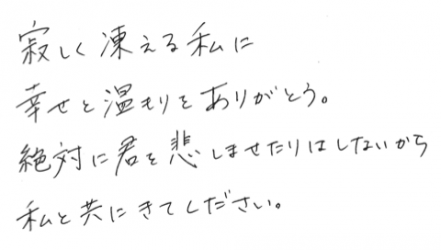 寂しく凍える私に
幸せと温もりをありがとう。
絶対に君を悲しませたりはしないから
私と共にきてください。